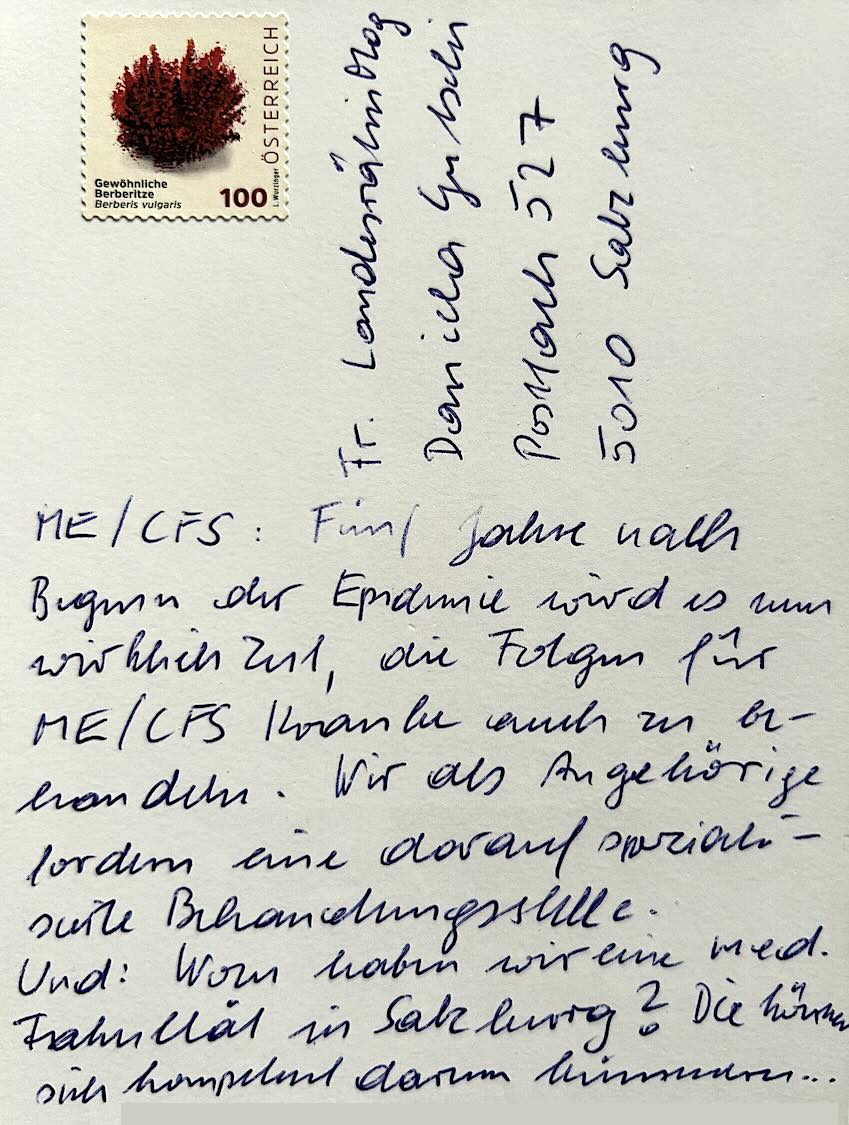 ÖSTERREICH
Gewöhnliche
Berberitze
Berberis vulgaris
100
L. Wurzinger
Fr. Landesrätin Mag
Daniela Gutschi
Postfach 527
5010 Salzburg
ME/CFS: Fünf Jahre nach
Beginn der Epidemie wird es nun
wirklich Zeit, die Folgen für
ME/CFS Kranke auch zu be-
handeln. Wir als Angehörige
fordern eine darauf speziali-
sierte Behandlungsstelle.
Und: Wozu haben wir eine med.
Fakultät in Salzburg? Die können
sich kompetent darum kümmern...